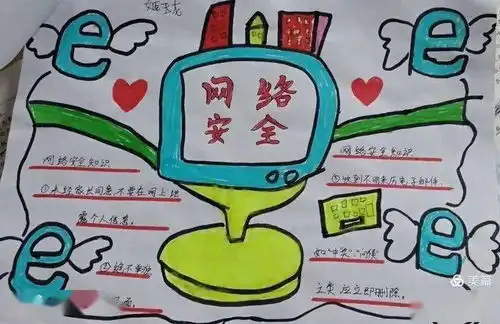 网络
安全
网络安全知识
①未经家长同意,不要在网上泄
露个人信息。
网络安全知识
②收到不明来历电子邮件,
如"中奖"、问候
之类,应立即删除。
e
e
e
e
美篇